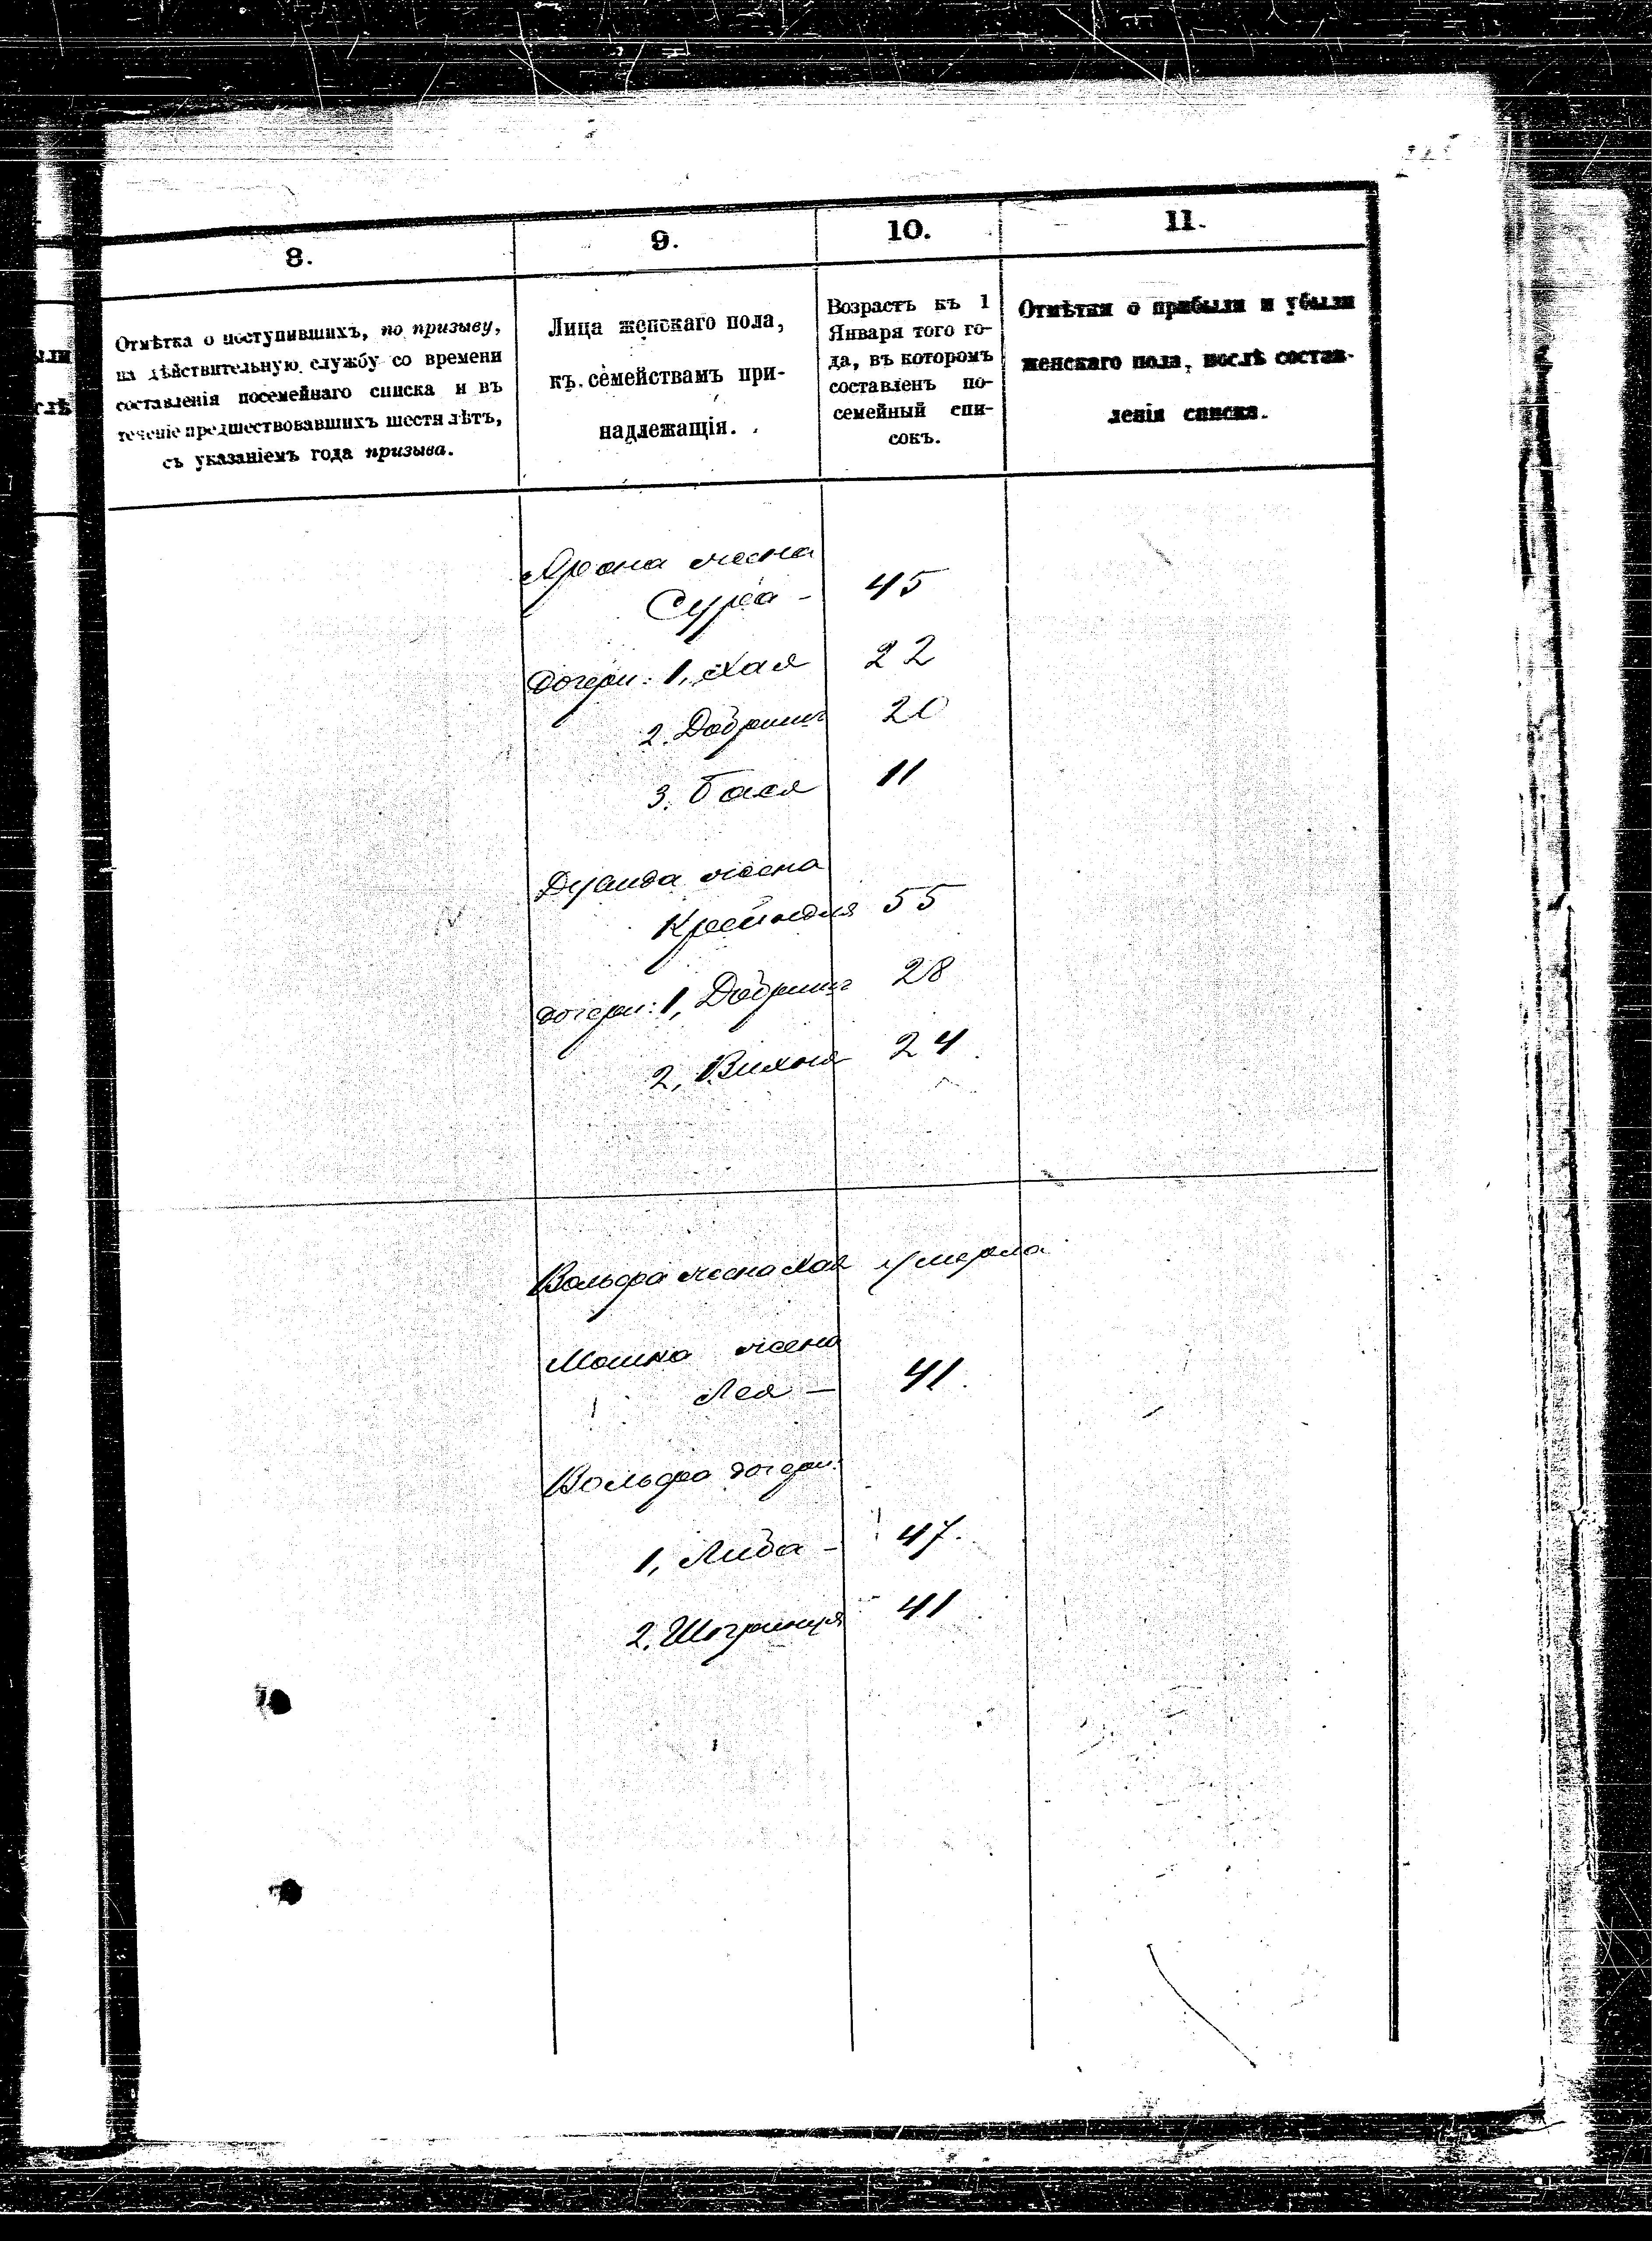 8.
9.
10.
11.
Отмѣтка о поступившихъ, по призыву,
на дѣйствительную службу со времени
составленія посемейнаго списка и въ
теченіе предшествовавшихъ шести лѣтъ,
съ указаніемъ года призыва.
Лица женскаго пола,
къ семействамъ при-
надлежащія.
Возрастъ къ 1
Января того го-
да, въ которомъ
составленъ по-
семейный спи-
сокъ.
Отмѣтки о прибыли и убыли
женскаго пола, послѣ состав-
ленія списка.
Арона жена
Сура - 45
дочери: 1, Хая 22
2. Добриш 20
3. Бася 11
жена
Крейндля 55
дочери: 1, Добриш 28
2, Вихна 24
Вольфа жена Хая умерла
Мошка жена
Лея - 41.
Вольфа дочери:
1, Либа - 47.
2. Шпринця 41